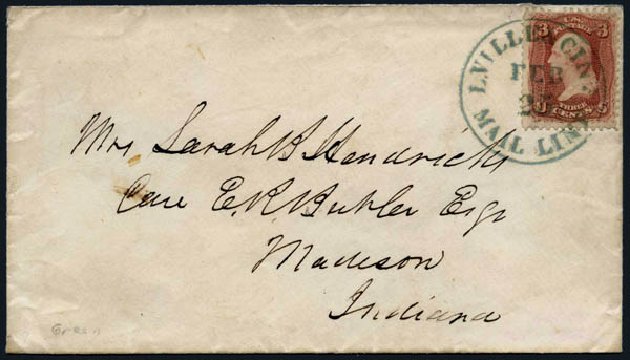 L.VILLE & CIN.
FEB
MAIL LINE
U.S.
POSTAGE
3 3
THREE
CENTS
Mrs Sarah B Hendricks
Care E. K. Buhler Esqr
Madison
Indiana
Green